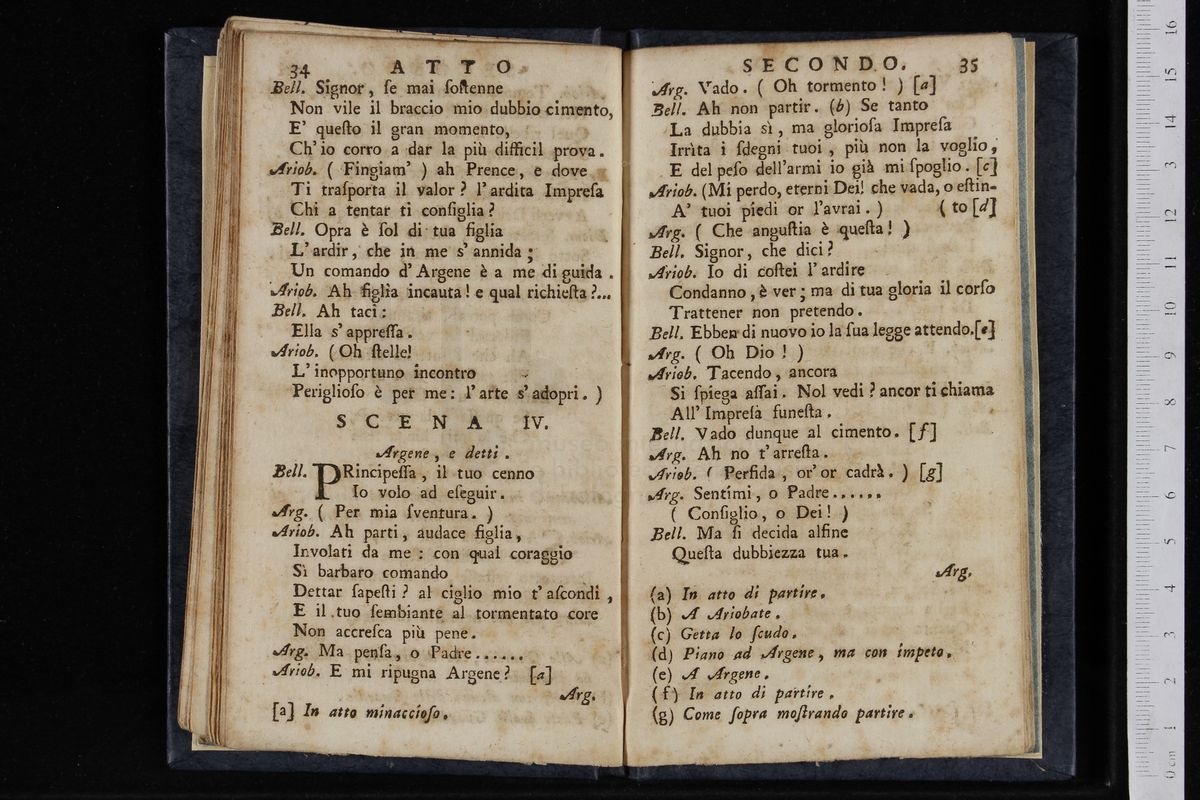 34 ATTO
Bell. Signor, ſe mai ſoſtenne
Non vile il braccio mio dubbio cimento,
E' queſto il gran momento,
Ch'io corro a dar la più difficil prova.
Ariob. ( Fingiam' ) ah Prence, e dove
Ti traſporta il valor? l'ardita Impreſa
Chi a tentar ti conſiglia?
Bell. Opra è ſol di tua figlia
L'ardir, che in me s'annida;
Un comando d'Argene è a me di guida.
Ariob. Ah figlia incauta! e qual richieſta?...
Bell. Ah taci:
Ella s'appreſſa.
Ariob. (Oh ſtelle!
L'inopportuno incontro
Periglioſo è per me: l'arte s'adopri. )
SCENA IV.
Argene, e detti.
Bell. PRincipeſſa, il tuo cenno
Io volo ad eſeguir.
Arg. ( Per mia ſventura. )
Ariob. Ah parti, audace figlia,
Involati da me: con qual coraggio
Sì barbaro comando
Dettar ſapeſti? al ciglio mio t'aſcondi,
E il tuo ſembiante al tormentato core
Non accreſca più pene.
Arg. Ma penſa, o Padre......
Ariob. E mi ripugna Argene? [a]
Arg.
[a] In atto minaccioſo.
SECONDO. 35
Arg. Vado. ( Oh tormento! ) [a]
Bell. Ah non partir. (b) Se tanto
La dubbia sì, ma glorioſa Impreſa
Irrìta i ſdegni tuoi, più non la voglio,
E del peſo dell'armi io già mi ſpoglio. [c]
Ariob. (Mi perdo, eterni Dei! che vada, o eſtin-
A' tuoi piedi or l'avrai. ) ( to [d]
Arg. ( Che anguſtia è queſta! )
Bell. Signor, che dici?
Ariob. Io di coſtei l'ardire
Condanno, è ver; ma di tua gloria il corſo
Trattener non pretendo.
Bell. Ebben di nuovo io la ſua legge attendo.[e]
Arg. ( Oh Dio! )
Ariob. Tacendo, ancora
Si ſpiega aſſai. Nol vedi? ancor ti chiama
All'Impreſa funeſta.
Bell. Vado dunque al cimento. [f]
Arg. Ah no t'arreſta.
Ariob. ( Perfida, or'or cadrà. ) [g]
Arg. Sentimi, o Padre......
( Conſiglio, o Dei! )
Bell. Ma ſi decida alfine
Queſta dubbiezza tua.
Arg.
(a) In atto di partire.
(b) A Ariobate.
(c) Getta lo ſcudo.
(d) Piano ad Argene, ma con impeto.
(e) A Argene.
(f) In atto di partire.
(g) Come ſopra moſtrando partire.
0 cm 1 2 3 4 5 6 7 8 9 10 11 12 3 14 15 16